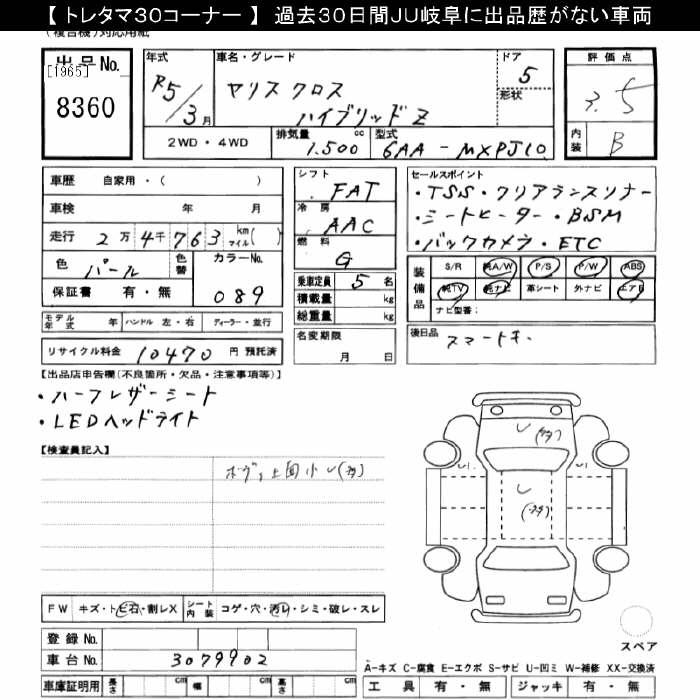 【 トレタマ３０コーナー 】 過去３０日間ＪＵ岐阜に出品歴がない車両
(複合機)対応用紙
出品No.
[1965]
8360
年式
R5/3月
車名・グレード
ヤリス クロス
ハイブリッドZ
ドア
5
形状
評価点
3.5
内装
B
2WD・4WD
排気量
1.500
cc
型式
6AA-MXPJ10
車歴 自家用・( )
車検 年 月
走行 2万4千763 km マイル( )
色 パール
色替
カラーNo.
089
保証書 有・無
モデル年式 年
ハンドル 左・右
ディーラー・並行
リサイクル料金 10470 円 預託済
シフト
FAT
冷房
AAC
燃料
G
乗車定員 5 名
積載量 kg
総重量 kg
名変期限
月 日
セールスポイント
・TSS・クリアランスソナー
・シートヒーター・BSM
・バックカメラ・ETC
装備品
S/R 純A/W P/S P/W ABS
純TV 純ナビ 革シート 外ナビ エアB
ナビ型番:
後日品
スマートキー
【出品店申告欄(不良箇所・欠品・注意事項等)】
・ハーフレザーシート
・LEDヘッドライト
【検査員記入】
ボディ上面小レ(多)
レ
(多)
レ
(多)
FW キズ・トビ石・割レX
シート内装 コゲ・穴・汚レ・シミ・破レ・スレ
登録 No.
車台 No. 3079902
車庫証明用 長さ cm 幅 cm 高さ cm
スペア
A-キズ C-腐食 E-エクボ S-サビ U-凹ミ W-補修 XX-交換済
工具 有・無
ジャッキ 有・無